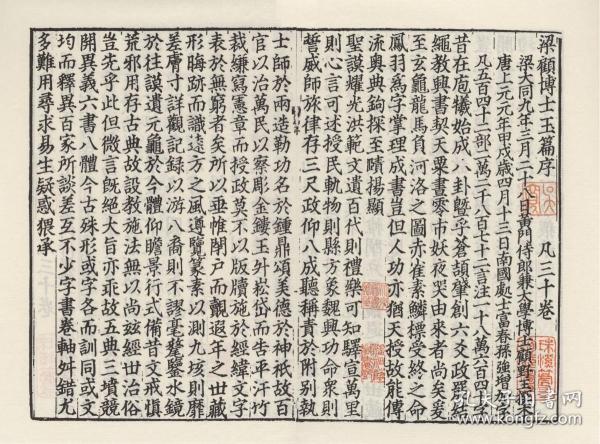 梁顧博士玉篇序　凡三十卷
梁大同九年三月二十八日黃門侍郎兼太學博士顧野王撰本
唐上元元年甲戌歲四月十三日南國處士富春孫強增加字
凡五百四十二部二萬二千八百七十二言注二十八萬六百四字
昔在庖犧始成八卦暨乎蒼頡肇創六爻政罷結
繩教興書契天粟晝零市妖夜哭由來者尚矣爰
至玄龜龍馬負河洛之圖赤雀素鱗標受終之命
鳳羽爲字掌理成書豈但人功亦猶天授故能傳
流奧典鉤探至賾揚顯
聖謨耀光洪範文遺百代則禮樂可知驛宣萬里
則心言可述授民軌物則縣方象魏興功命衆則
誓威師旅律存三尺政仰八成聽稱責於附別執
士師於兩造勒功名於鍾鼎頌美德於神祇故百
官以治萬民以察彫金鏤玉升崧岱而告平汗竹
裁縑寫憲章而授政莫不以版牘施於經緯文字
表於無窮者矣所以垂帷閉戶而覿遐年之世藏
形晦跡而識遠方之風遵覽篆素以測九垓則靡
差膚寸詳觀記錄以游八裔則不謬毫釐鑒水鏡
於往謨遺元龜於今體仰瞻景行式備昔文戒慎
荒邪用存古典故設教施法無以尚茲經世治俗
豈先乎此但微言既絕大旨亦乖故五典三墳競
開異義六書八體今古殊形或字各而訓同或文
均而釋異百家所談差互不少字書卷軸舛錯尤
多難用尋求易生疑惑猥承